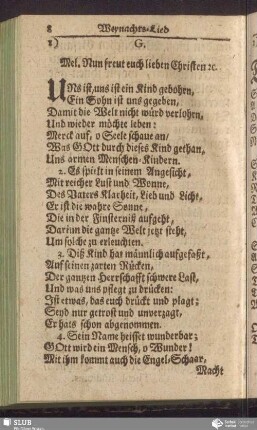 8 Weynachts-Lied
1) G.
Mel. Nun freut euch lieben Christen ꝛc.
UNs ist, uns ist ein Kind gebohrn,
Ein Sohn ist uns gegeben,
Damit die Welt nicht würd verlohrn,
Und wieder möchte leben:
Merck auf, o Seele schaue an/
Was GOtt durch dieses Kind gethan,
Uns armen Menschen-Kindern.
2. Es spielt in seinem Angesicht,
Mit reicher Lust und Wonne,
Des Vaters Klarheit, Lieb und Licht,
Er ist die wahre Sonne,
Die in der Finsterniß aufgeht,
Darinn die gantze Welt jetzt steht,
Um solche zu erleuchten.
3. Diß Kind has männlich aufgefaßt,
Auf seinen zarten Rücken,
Der gantzen Herrschafft schwere Last,
Und was uns pflegt zu drücken:
Ist etwas, das euch drückt und plagt;
Seyd nur getrost und unverzagt,
Er hats schon abgenommen.
4. Sein Name heisset wunderbar;
GOtt wird ein Mensch, o Wunder!
Mit ihm kommt auch die Engel-Schaar,
Macht
SLUB